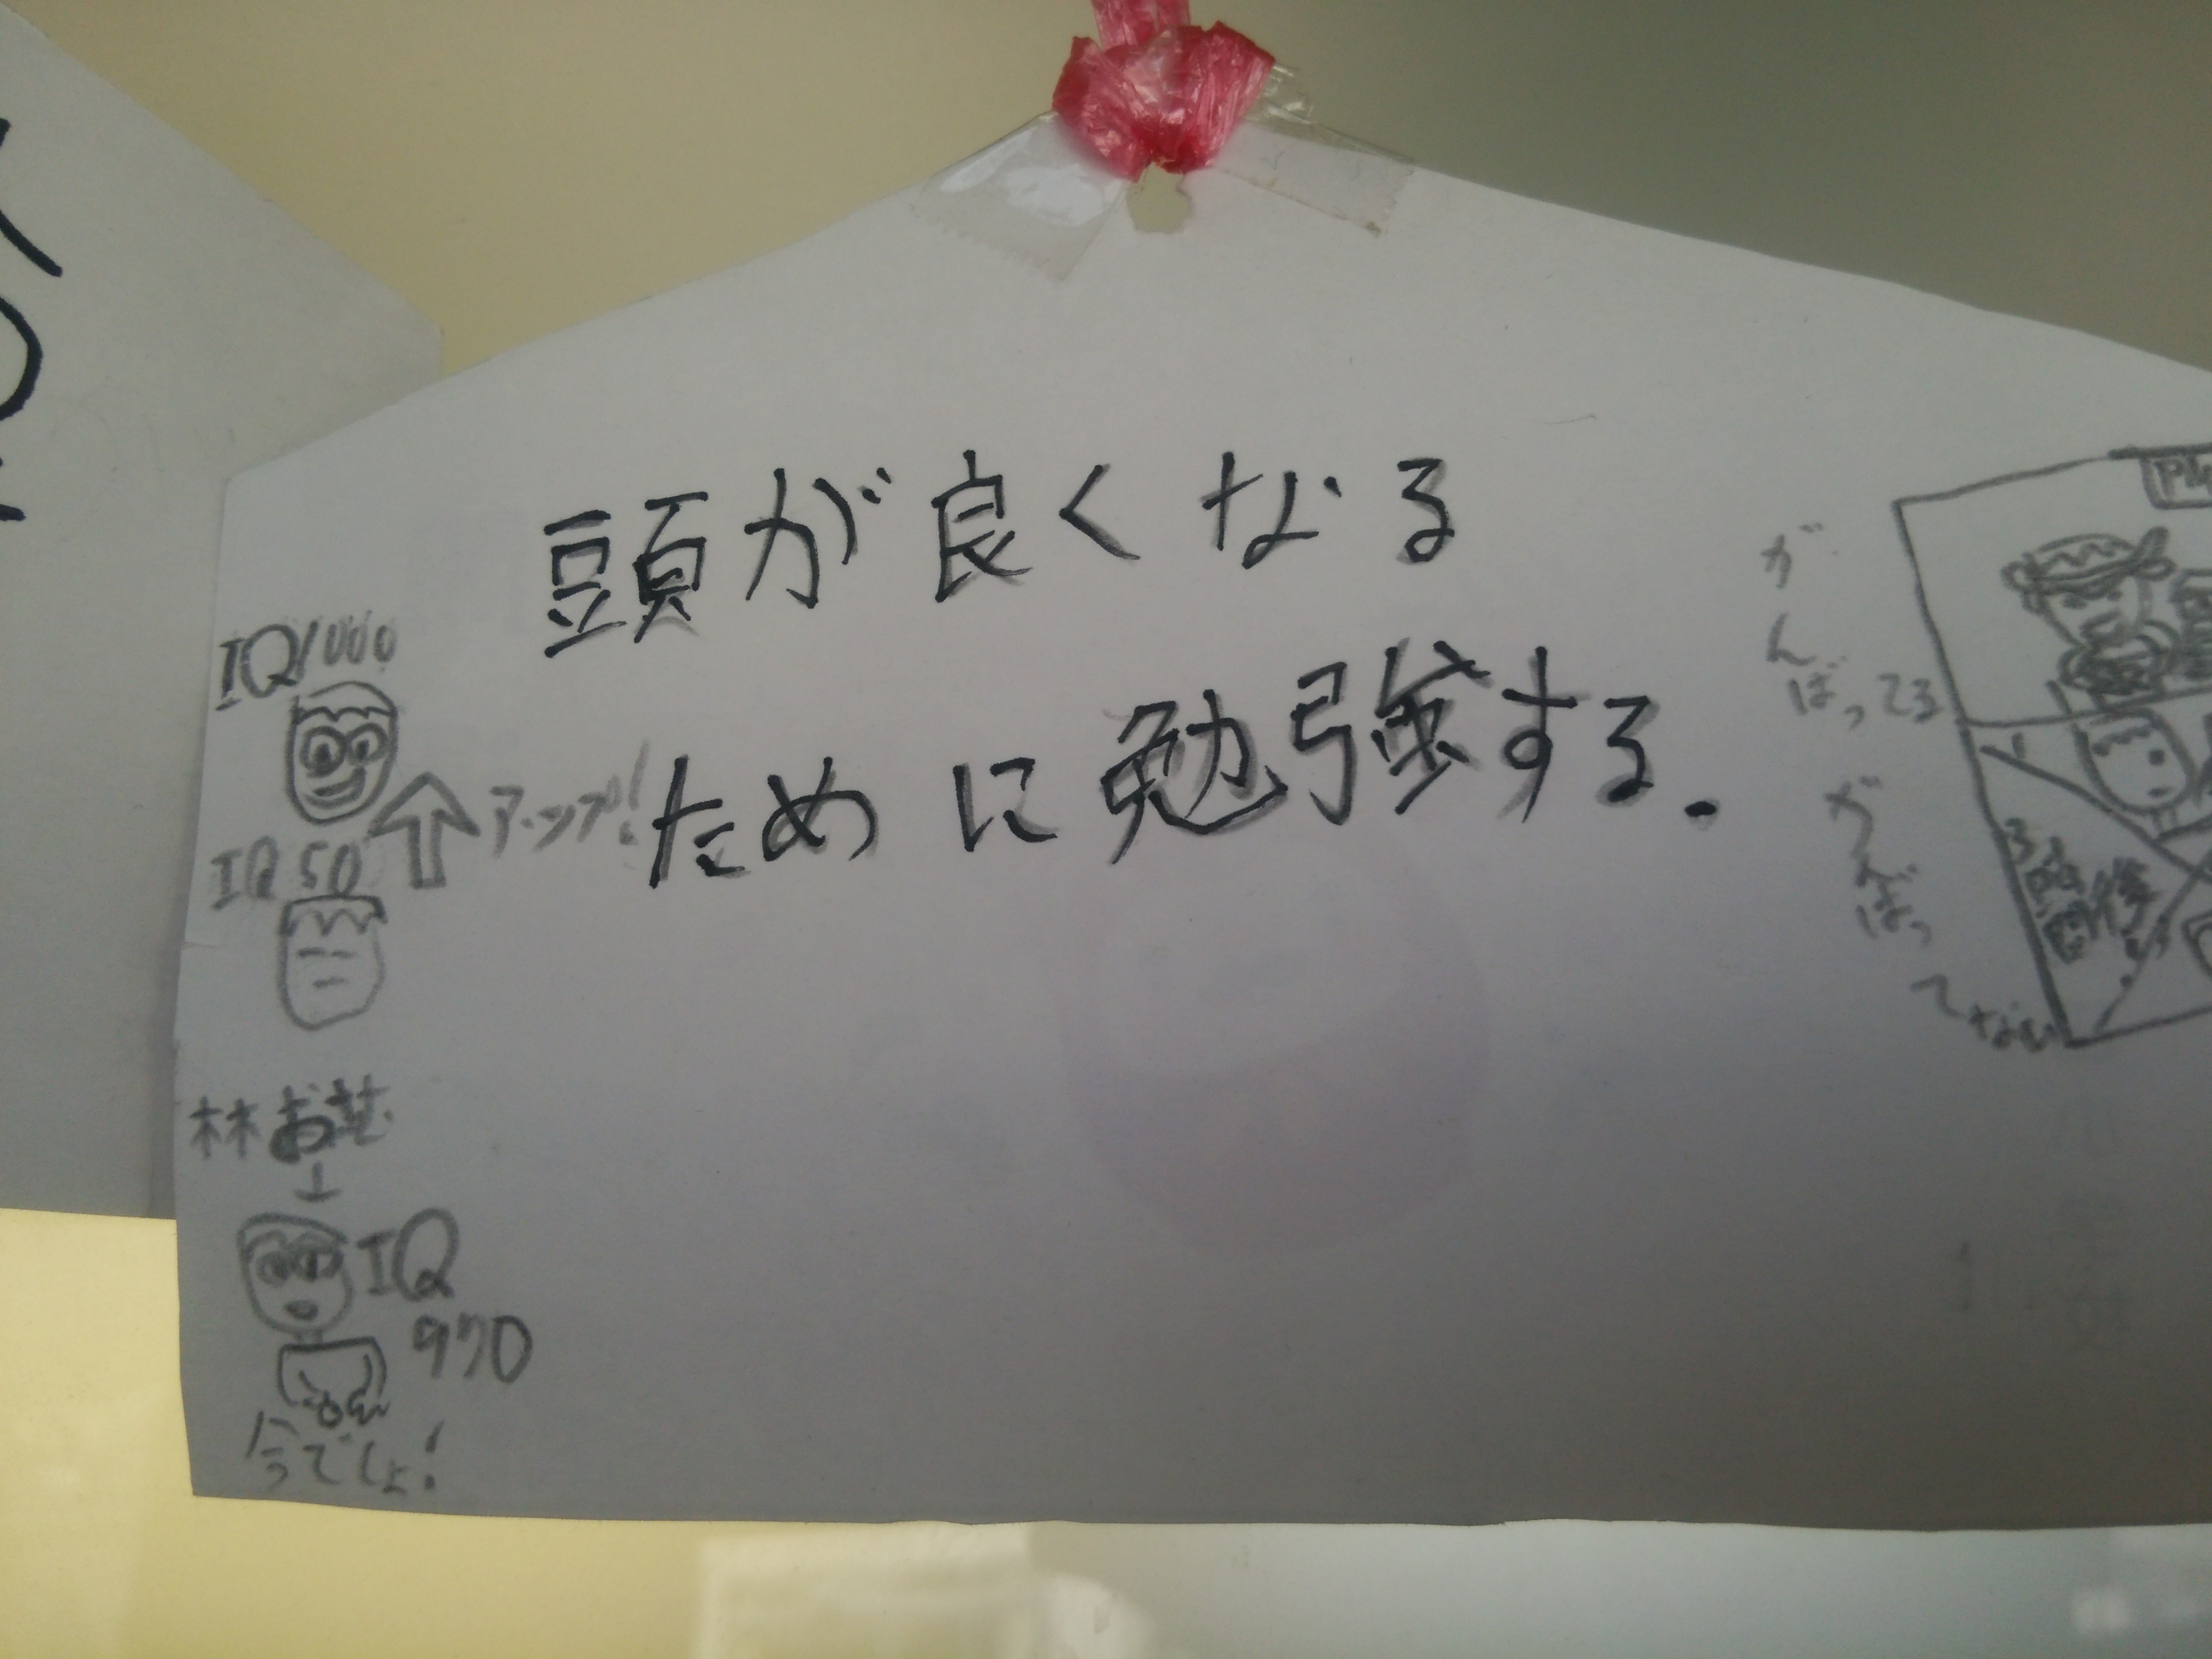 頭が良くなる
ために勉強する.
IQ1000
アップ!
IQ50
林おさむ
IQ
970
今でしょ!
がんばってる
がんばっ
てない